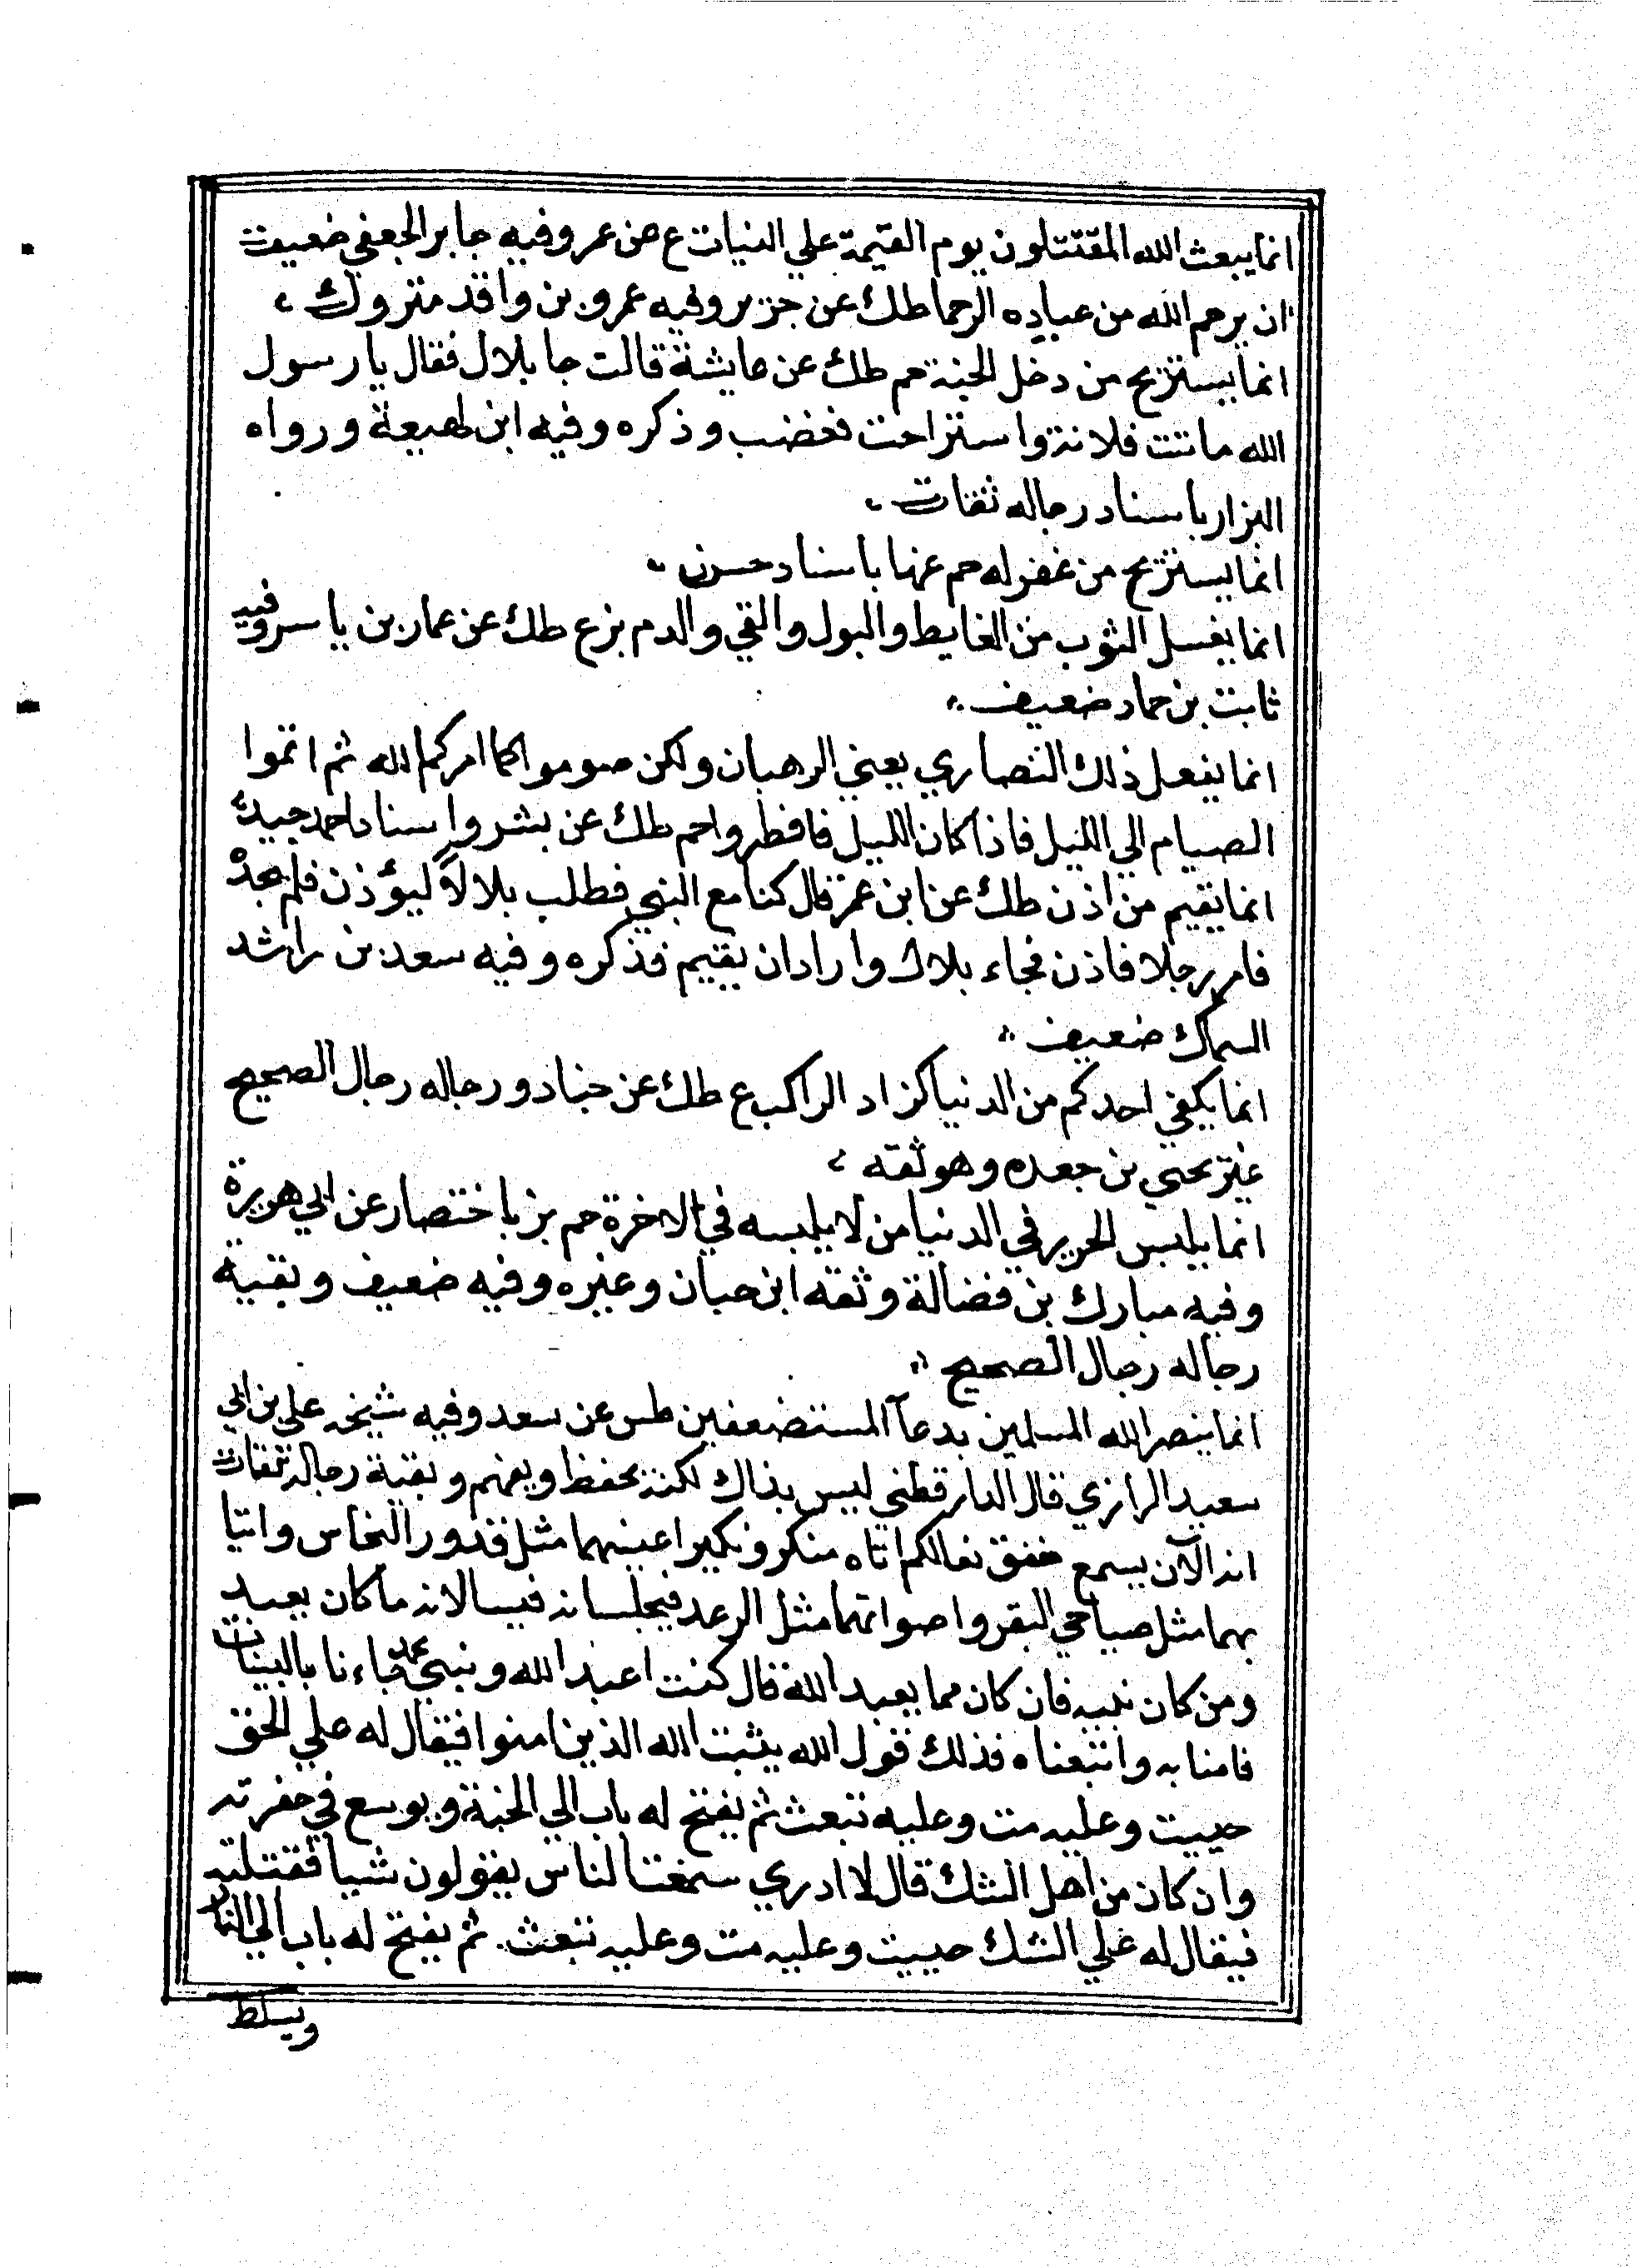 انما يبعث الله المقتتلون يوم القيمة علي النيات ع ص عن عمر وفيه جابر الجعفي ضعيف
ان يرحم الله من عباده الرحما طك عن جرير وفيه عمرو بن واقد متروك
انما يستريح من دخل الجنة حم طك عن عايشة قالت جا بلال فقال يا رسول
الله ماتت فلانة واستراحت فغضب وذكره وفيه ابن لهيعة ورواه
البزار باسناد رجاله ثقات
انما يستريح من غفر له حم عنها باسناد حسن
انما يغسل الثوب من الغايط والبول والقي والدم بز ع طك عن عمار بن ياسر وفيه
ثابت بن حماد ضعيف
انما يفعل ذلك النصاري يعني الرهبان ولكن صوموا كما امركم الله ثم اتموا
الصيام الي الليل فاذا كان الليل فافطروا حم طك عن بشر واسناد احمد جيد
انما يقيم من اذن طك عن ابن عمر قال كنا مع النبي فطلب بلالاً ليؤذن فلم يجده
فامر رجلا فاذن فجاء بلال وارادان يقيم فذكره وفيه سعد بن راشد
السماك ضعيف
انما يكفي احدكم من الدنيا كزاد الراكب ع طك عن جناد ورجاله رجال الصحيح
غير يحيي بن جعده وهو ثقه
انما يلبس الحرير في الدنيا من لا يلبسه في الاخرة حم بز باختصار عن ابي هريرة
وفيه مبارك بن فضالة وثقه ابن حبان وغيره وفيه ضعيف وبقية
رجاله رجال الصحيح
انما ينصر الله المسلمين بدعآ المستضعفين طس عن سعد وفيه شيخه علي بن ابي
سعيد الرازي قال الدارقطني ليس بذاك لكنه يحفظ ويفهم وبقية رجاله ثقات
انه الآن يسمع خفق نعالكم اتاه منكر ونكير اعينهما مثل قدور النحاس وانيا
بهما مثل صياحي البقر واصواتهما مثل الرعد فيجلسانه فيسالانه ما كان يعبد
ومن كان نبيه فان كان مما يعبد الله قال كنت اعبد الله ونبيي محمد جاءنا بالبينات
فامنا به واتبعناه فذلك قول الله يثبت الله الذين امنوا فيقال له علي الحق
حييت وعليه مت وعليه تبعث ثم يفتح له باب الي الجنة ويوسع في حفرته
وان كان من اهل الشك قال لا ادري سمعت الناس يقولون شيا فقتلته
فيقال له علي الشك حييت وعليه مت وعليه تبعث ثم يفتح له باب الي النار
ويسلط